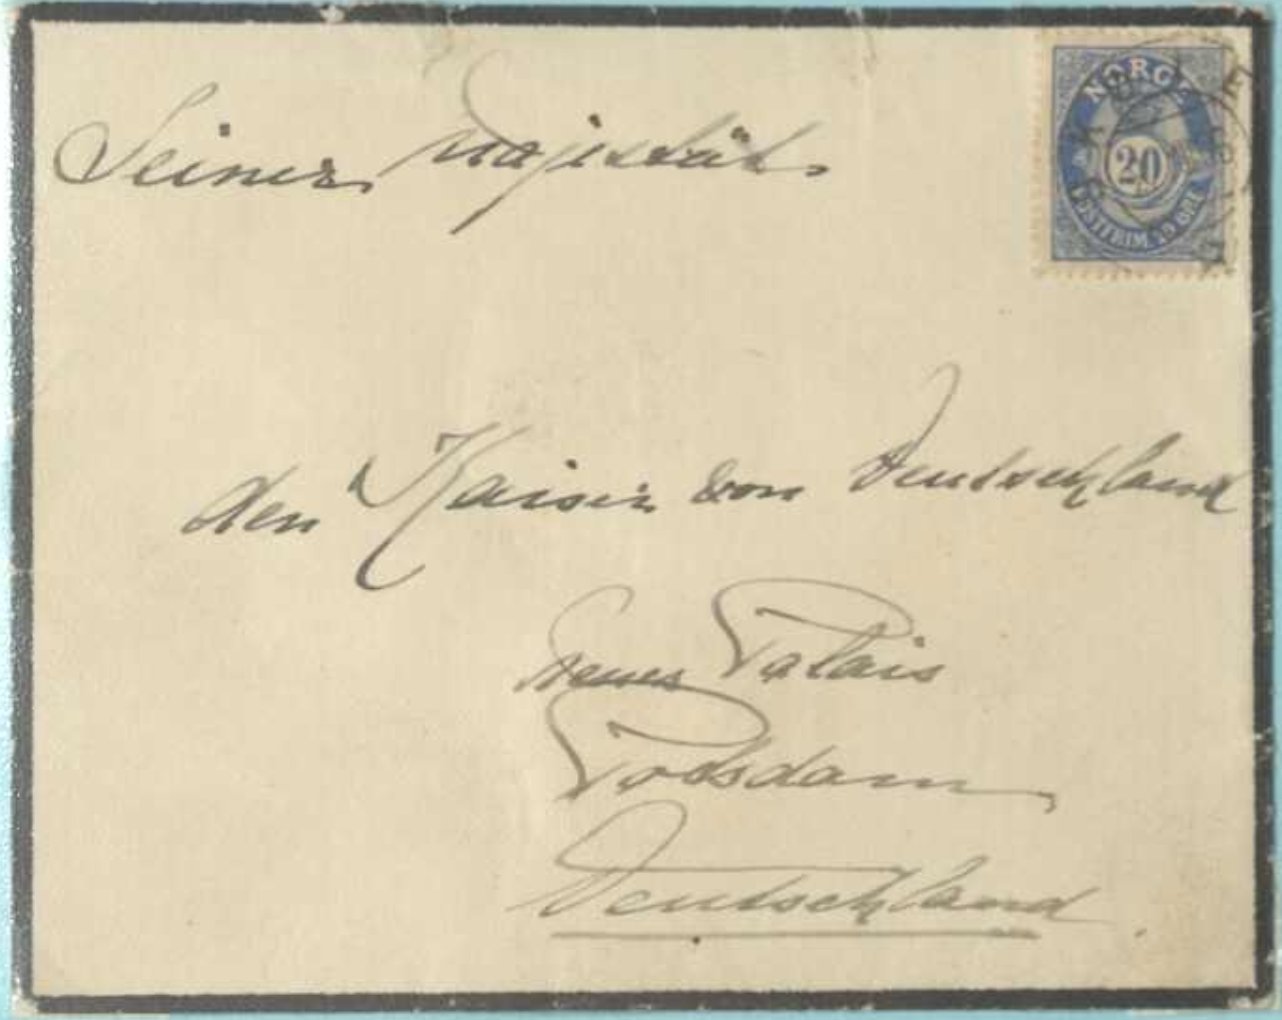 Seiner Majestät
NORGE
20
den Kaiser von Deutschland
Neues Palais
Potsdam
Deutschland